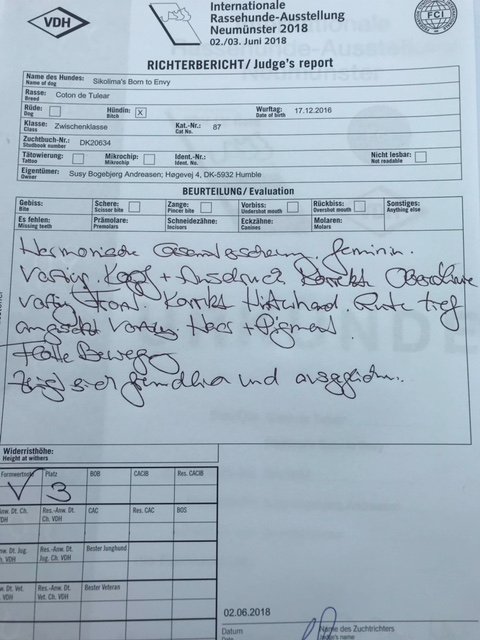 VDH
Internationale
Rassehunde-Ausstellung
Neumünster 2018
02./03. Juni 2018
FCI
RICHTERBERICHT / Judge's report
Name des Hundes: Sikolima's Born to Envy
Name of dog
Rasse: Coton de Tulear
Breed
Rüde: Hündin: X Wurftag: 17.12.2016
Dog Bitch Date of birth
Klasse: Zwischenklasse Kat.-Nr.: 87
Class Cat No.
Zuchtbuch-Nr.: DK20634
Studbook number
Tätowierung: Mikrochip: Ident.-No.: Nicht lesbar:
Tattoo Mikrochip Ident. No. Not readable
Eigentümer: Susy Bogebjerg Andreasen; Høgevej 4, DK-5932 Humble
Owner
BEURTEILUNG / Evaluation
Gebiss: Schere: Zange: Vorbiss: Rückbiss: Sonstiges:
Bite Scissor bite Pincer bite Undershot mouth Overshot mouth Anything else
Es fehlen: Prämolare: Schneidezähne: Eckzähne: Molaren:
Missing teeth Premolars Incisors Canines Molars
Harmonische Gesamterscheinung, feminin.
Vorzügl. Kopf + Ausdruck. Korrekte Oberlinie
vorzügl. Front. Korrekte Hinterhand. Rute tief
angesetzt. Vorzügl. Haar + Pigment.
Flotte Bewegg
Zeigt sich freundlich und ausgeglichen.
Widerristhöhe:
Height at withers
Formwertnote Platz BOB CACIB Res. CACIB
V 3
Anw. Dt. Ch. VDH Res.-Anw. Dt. Ch. VDH CAC Res. CAC BOS
Anw. Dt. Jug. Ch. VDH Res.-Anw. Dt. Jug. Ch. VDH Bester Junghund
Anw. Dt. Vet. Ch. VDH Res.-Anw. Dt. Vet. Ch. VDH Bester Veteran
02.06.2018
Datum Name des Zuchtrichters
Date